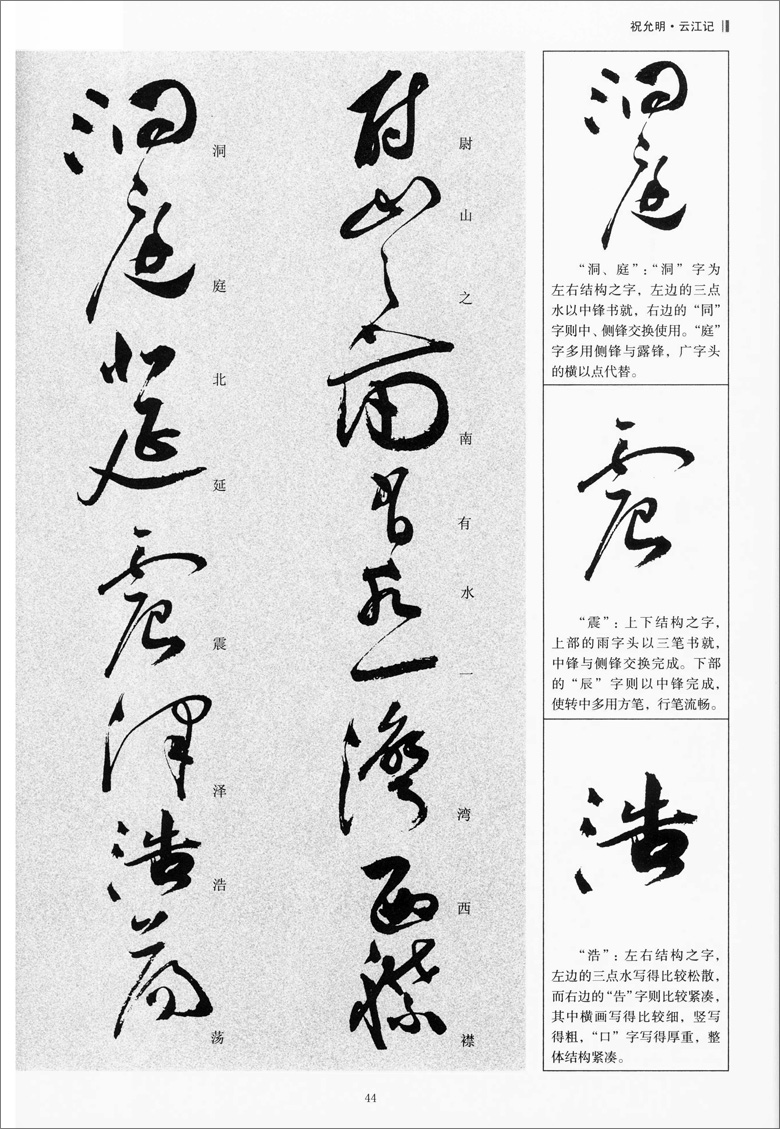 祝允明·云江记
尉山之南有水一湾西襟
洞庭北延震泽浩荡
“洞、庭”：“洞”字为
左右结构之字，左边的三点
水以中锋书就，右边的“同”
字则中、侧锋交换使用。“庭”
字多用侧锋与露锋，广字头
的横以点代替。
“震”：上下结构之字，
上部的雨字头以三笔书就，
中锋与侧锋交换完成。下部
的“辰”字则以中锋完成，
使转中多用方笔，行笔流畅。
“浩”：左右结构之字，
左边的三点水写得比较松散，
而右边的“告”字则比较紧凑，
其中横画写得比较细，竖写
得粗，“口”字写得厚重，整
体结构紧凑。
44